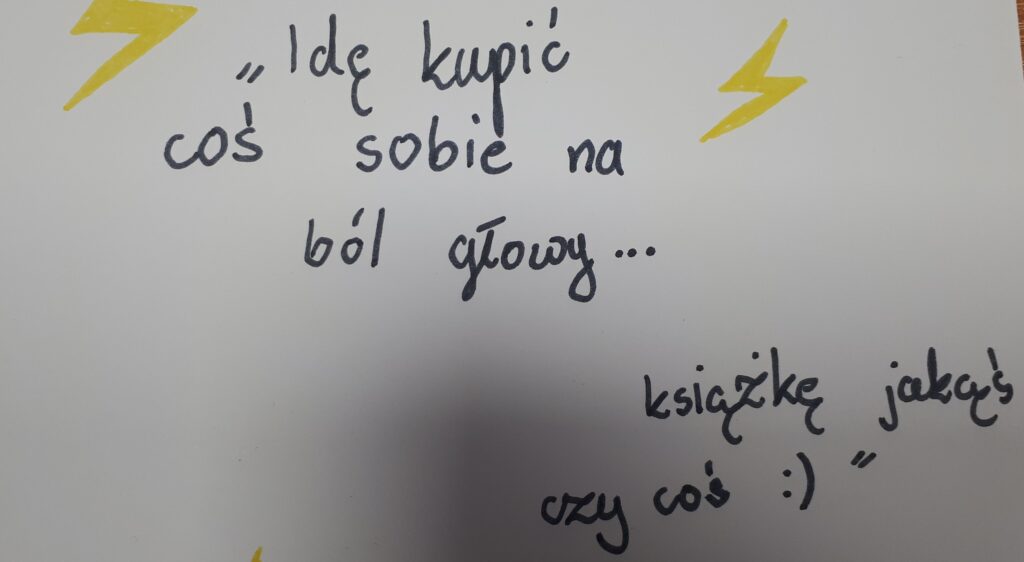 „Idę kupić
coś sobie na
ból głowy...
książkę jakąś
czy coś :)”